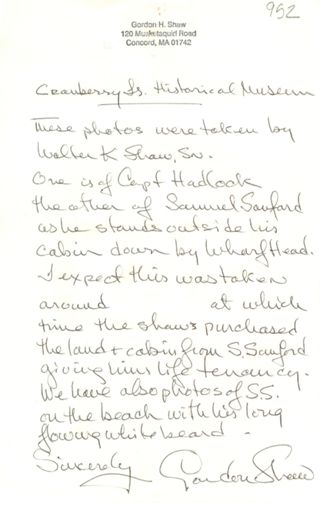 952
Gordon H. Shaw
120 Musketaquid Road
Concord, MA 01742
Cranberry Is. Historical Museum
These photos were taken by
Walter K Shaw, Sr.
One is of Capt Hadlock
the other of Samuel Sanford
as he stands outside his
cabin down by Wharf Head.
I expect this was taken
around at which
time the shaws purchased
the land + cabin from S. Sanford
giving him life tenancy.
We have also photos of SS.
on the beach with his long
flowing white beard -
Sincerely Gordon Shaw